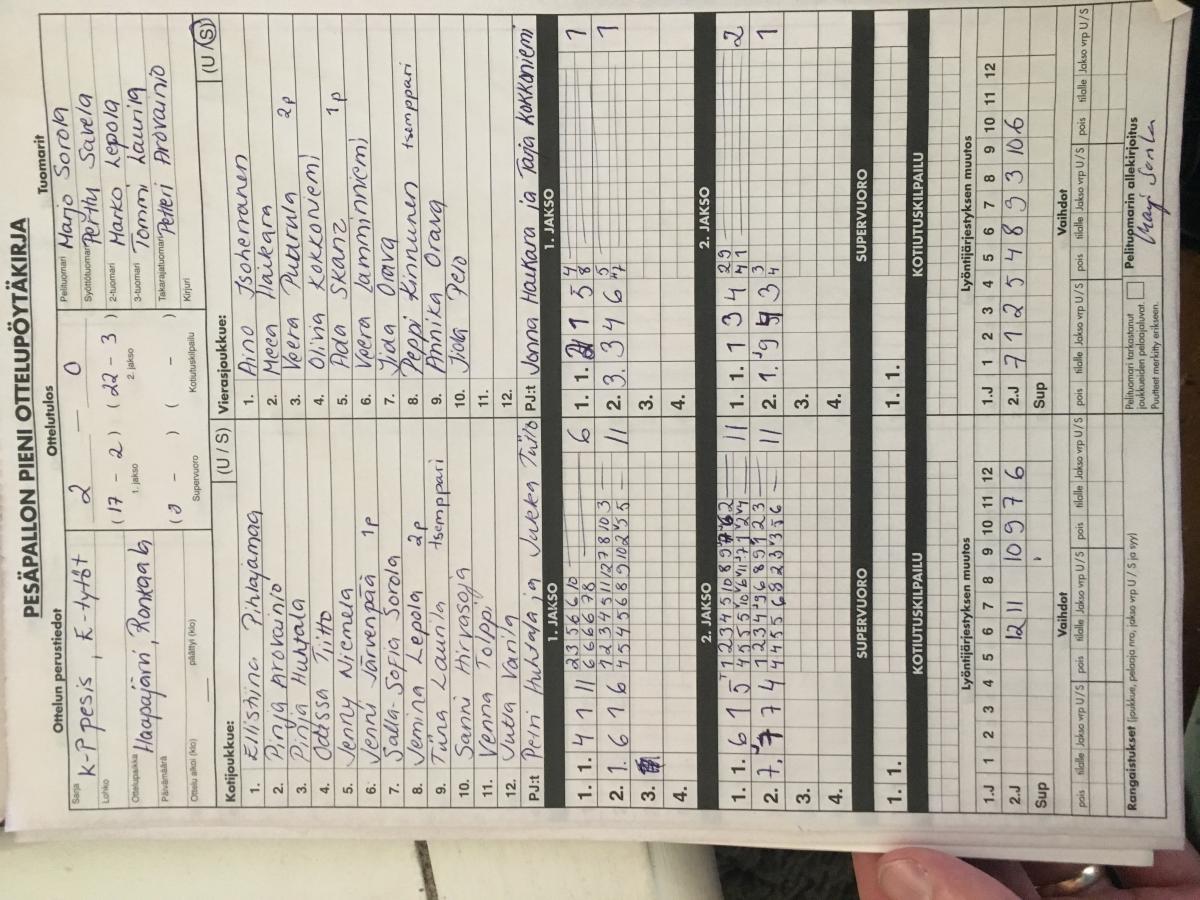 PESÄPALLON PIENI OTTELUPÖYTÄKIRJA
Ottelun perustiedot
Ottelutulos
Tuomarit
Sarja K-P pesis, E-tytöt
Lohko
Ottelupaikka Haapajärvi, Ronkaala
Päivämäärä
Ottelu alkoi (klo) päättyi (klo)
2 – 0
( 17 – 2 ) ( 22 – 3 )
1. jakso 2. jakso
( 0 – ) ( – )
Supervuoro Kotiutuskilpailu
Pelituomari Marjo Sorola
Syöttötuomari Perttu Savela
2-tuomari Marko Lepola
3-tuomari Tommi Launila
Takarajatuomari Petteri Arovainio
Kirjuri
Kotijoukkue: (U / S)
1. Ellistiina Pihlajamaa
2. Pinja Arovainio
3. Pinja Huhtala
4. Odessa Tiitto
5. Jenny Niemelä
6. Jenni Järvenpää 1p
7. Salla-Sofia Sorola
8. Jemina Lepola 2p
9. Tiina Launila tsemppari
10. Sanni Hirvasoja
11. Venna Tolppi
12. Jutta Varila
PJ:t Petri Huhtala ja Jukka Tiitto
Vierasjoukkue: (U / S)
1. Aino Isoherranen
2. Meea Haikara
3. Veera Puturula 2p
4. Olivia Kokkoniemi
5. Ada Skanz 1p
6. Veera Lamminniemi
7. Iida Orava
8. Peppi Kinnunen tsemppari
9. Annika Orava
10. Joka Pelo
11.
12.
PJ:t Jonna Haikara ja Tarja Kokkoniemi
1. JAKSO
1. JAKSO
1. 1. 4 1 11 2 3 5 6 6 10 6
6 6 6 6 7 8
2. 1. 6 1 6 1 2 3 4 5 11 12 7 8 10 3 11
4 5 4 5 6 8 9 10 2 5 5
3.
4.
1. 1. 1 5 4 8 1
2. 3. 3 4 6 5 1
3.
4.
2. JAKSO
2. JAKSO
1. 1. 6 1 5 11
2. 7. 7 7 4 11
3.
4.
1. 1. 1 3 4 2
2. 1. 3 1
3.
4.
SUPERVUORO
SUPERVUORO
1. 1.
1. 1.
KOTIUTUSKILPAILU
KOTIUTUSKILPAILU
Lyöntijärjestyksen muutos
Lyöntijärjestyksen muutos
1.J 1 2 3 4 5 6 7 8 9 10 11 12
2.J 12 11 10 9 7 6
Sup
1.J 1 2 3 4 5 6 7 8 9 10 11 12
2.J 7 1 2 5 4 8 9 3 10 6
Sup
Vaihdot
Vaihdot
pois tilalle Jakso vrp U / S pois tilalle Jakso vrp U / S pois tilalle Jakso vrp U / S
pois tilalle Jakso vrp U / S pois tilalle Jakso vrp U / S pois tilalle Jakso vrp U / S
Rangaistukset (joukkue, pelaaja nro, jakso vrp U / S ja syy)
Pelituomari tarkastanut
joukkueiden pelaajaluvat.
Puutteet merkitty erikseen.
Pelituomarin allekirjoitus